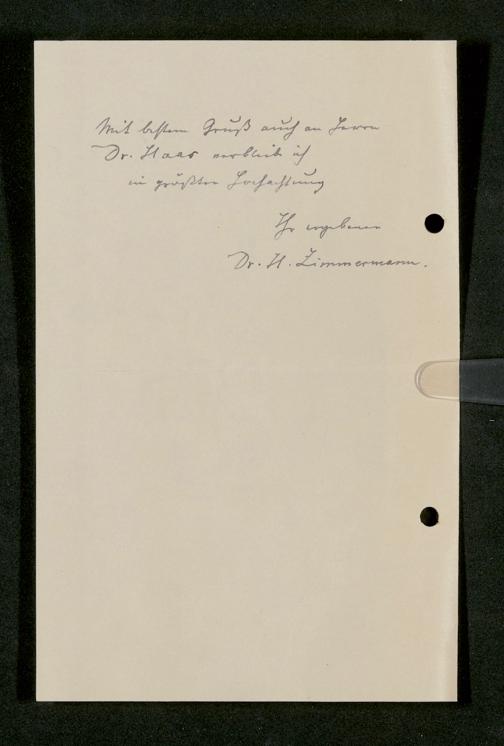 Mit bestem Gruß auch an Herrn
Dr. Haas verbleib ich
in größter Hochachtung
Ihr ergebener
Dr. H. Zimmermann.